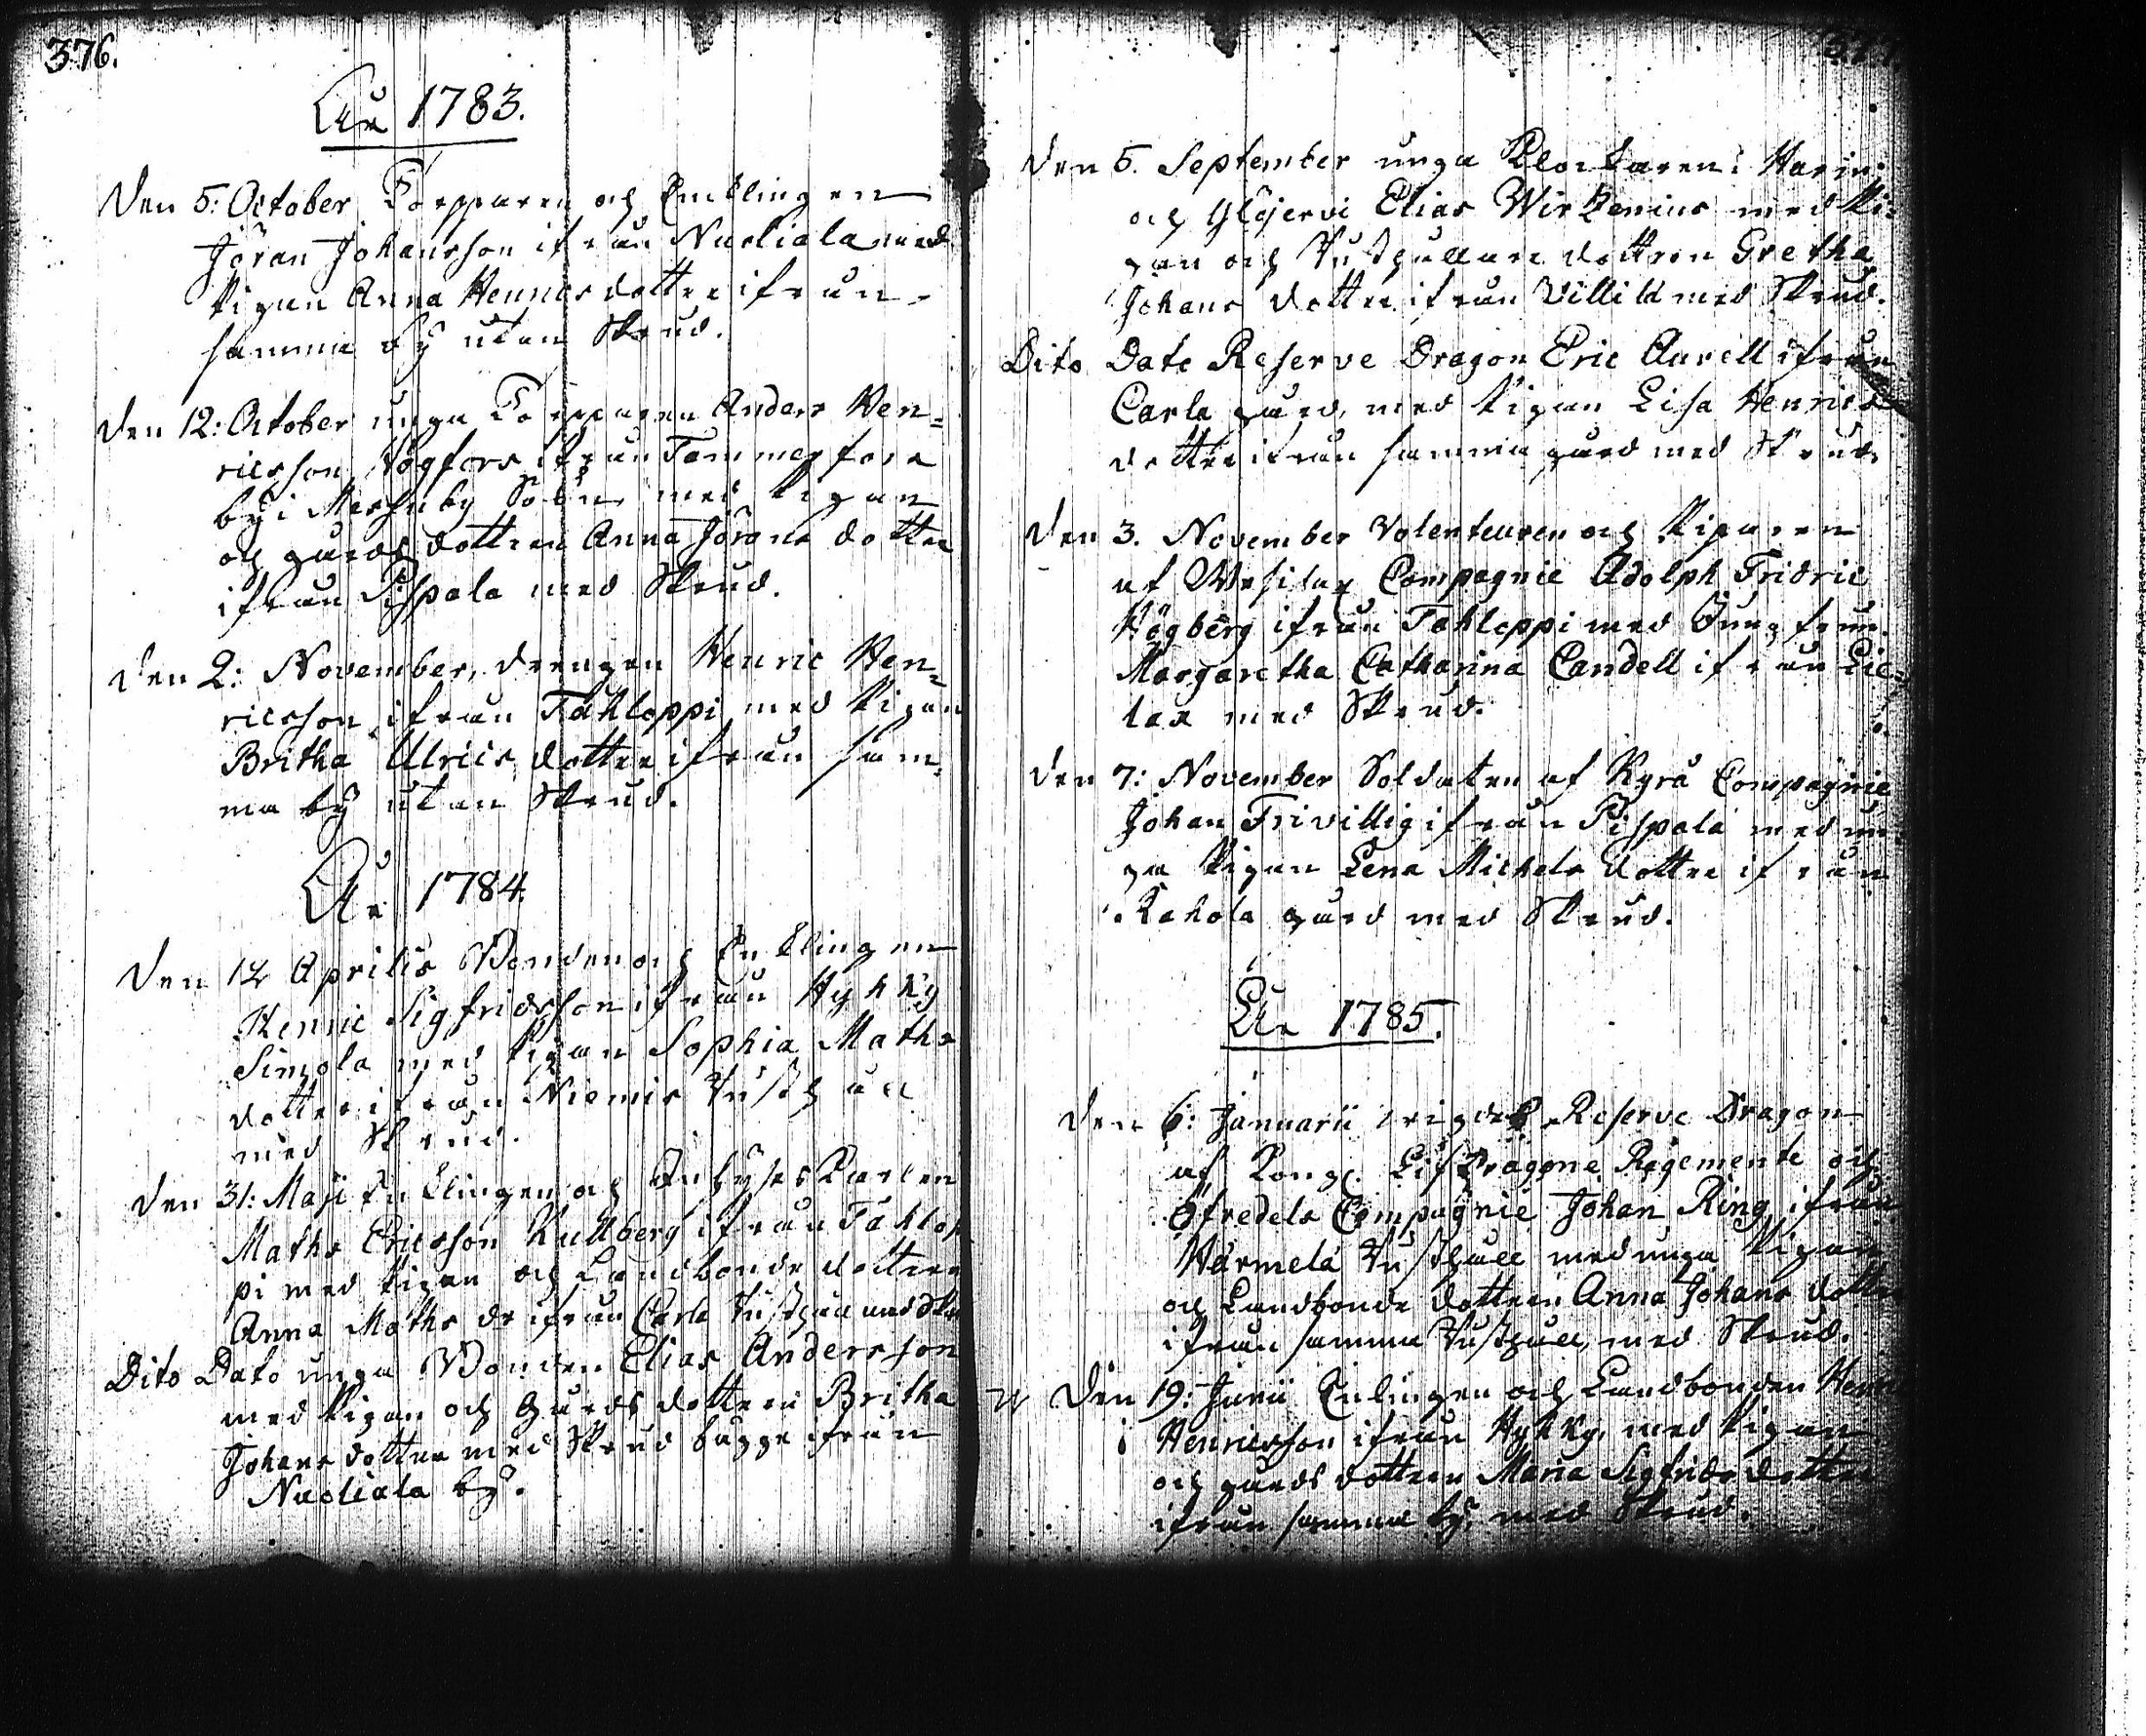 376.
År 1783.
Den 5: October Torpparen och Enklingen
Jöran Johansson ifrån Nuoliala med
Pigan Anna Henricsdotter ifrån
samma by utan Skrud.
Den 12: October unga Torpparen Anders Hen=
ricsson Högfors ifrån Tammerfors
by i Messuby Sokn med Pigan
och gårds dottren Anna Jörans dotter
ifrån Pispala med Skrud.
Den 2: November, drengen Henric Hen=
ricsson ifrån Tahloppi med Pigan
Britha Ulrics dotter ifrån sam=
ma by utan Skrud.
År 1784.
Den 12 Aprilis Bonden och Enklingen
Henric Sigfridsson ifrån Hyhky
Simola med Pigan Sophia Maths
dotter ifrån Niemis Rusthåll
med Skrud.
Den 31: Maji Enklingen och Inhyses Karlen
Maths Ericsson Kullberg ifrån Tahlop
pi med Pigan och Landbonde dottren
Anna Maths dr ifrån Carla Rusthåll med
Dito Dato unga Bonden Elias Andersson
med Pigan och Gårds dottren Britha
Johans dotter med Skrud bägge ifrån
Nuoliala by.
377.
Den 5. September unga Klockaren i Harju
och Ylöjervi Elias Wirzenius med Pi=
gan och Rusthållare dottren Gretha
Johans dotter ifrån Villilä med Skrud.
Dito Dato Reserve Dragon Eric Aurell ifrån
Carla gård, med Pigan Lisa Henrics
dotter ifrån samma gård med Skrud
Den 3. November Volenteuren och Piparen
af Wesilax Compagnie Adolph Fridric
Högberg ifrån Tahloppi med Jungfrun
Margaretha Catharina Candell ifrån Lie=
lax med Skrud.
Den 7: November Soldaten af Kyrå Compagnie
Johan Frivillig ifrån Pispala med un=
ga Pigan Lena Michels dotter ifrån
Rahola gård med Skrud.
År 1785.
Den 6: Januarii Reserve Dragon
af Kongl. Lif Dragone Regemente och
Öfredels Compagnie Johan Ring ifrån
Härmelä Rusthåll med unga Pigan
och Landbonde dottren Anna Johans dotter
ifrån samma Rusthåll, med Skrud.
Den 19: Junii Enklingen och Landbonden Henric
Henricsson ifrån Hyhky, med Pigan
och gårds dottren Maria Sigfrids dotter
ifrån samma by, med Skrud.